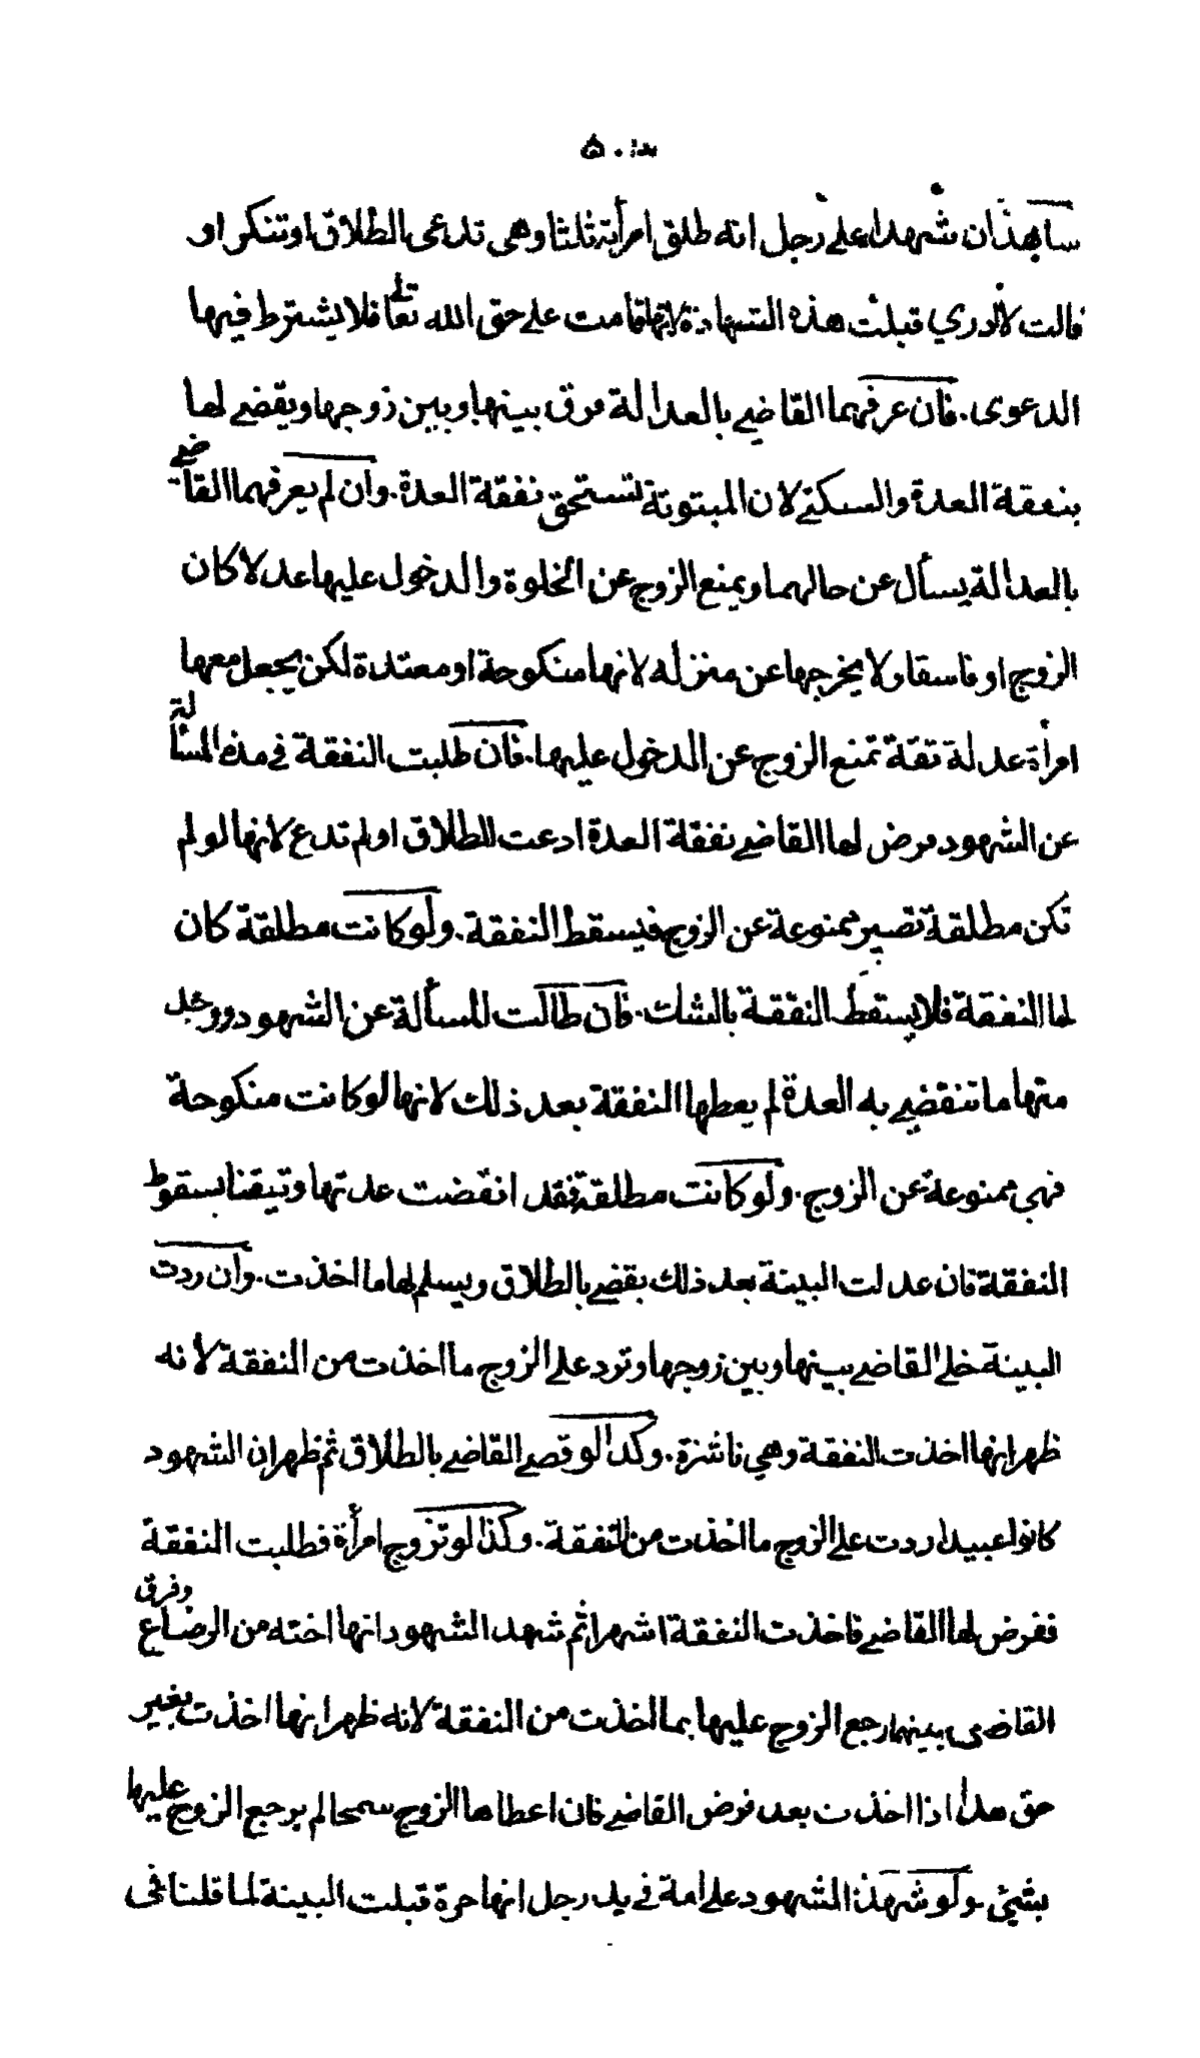 شاهدان شهدا على رجل انه طلق امرأته ثلثا وهى تدعى الطلاق او تنكر او
قالت لا ادري قبلت هذه الشهادة لانها قامت على حق الله تعالى فلا يشترط فيها
الدعوى. فان عرفهما القاضي بالعدالة فرق بينها وبين زوجها ويقضي لها
بنفقة العدة والسكنى لان المبتوتة تستحق نفقة العدة. وان لم يعرفهما القاضي
بالعدالة يسأل عن حالهما ويمنع الزوج عن الخلوة والدخول عليها عدلا كان
الزوج او فاسقا ولا يخرجها عن منزله لانها منكوحة او معتدة لكن يجعل معها
امرأة عدلة ثقة تمنع الزوج عن الدخول عليها. فان طلبت النفقة في مدة المسألة
عن الشهود فرض لها القاضي نفقة العدة ادعت الطلاق او لم تدع لانها لو لم
تكن مطلقة تصير ممنوعة عن الزوج فيسقط النفقة. ولو كانت مطلقة كان
لها النفقة فلا يسقط النفقة بالشك. فان طالت المسألة عن الشهود ووجد
منها ما تنقضي به العدة لم يعطها النفقة بعد ذلك لانها لو كانت منكوحة
فهي ممنوعة عن الزوج. ولو كانت مطلقة فقد انقضت عدتها وتيقنا بسقوط
النفقة فان عدلت البينة بعد ذلك يقضي بالطلاق ويسلم لها ما اخذت. وان ردت
البينة خلى القاضي بينها وبين زوجها وترد على الزوج ما اخذت من النفقة لانه
ظهر انها اخذت النفقة وهي ناشزة. وكذا لو قضى القاضي بالطلاق ثم ظهر ان الشهود
كانوا عبيدا ردت على الزوج ما اخذت من النفقة. وكذا لو تزوج امرأة فطلبت النفقة
ففرض لها القاضي فاخذت النفقة اشهرا ثم شهد الشهود انها اخته من الرضاع وفرق
القاضى بينهما رجع الزوج عليها بما اخذت من النفقة لانه ظهر انها اخذت بغير
حق هذا اذا اخذت بعد فرض القاضي فان اعطاها الزوج سمحا لم يرجع الزوج عليها
بشيئ. ولو شهد الشهود على امة في يد رجل انها حرة قبلت البينة لما قلنا فى